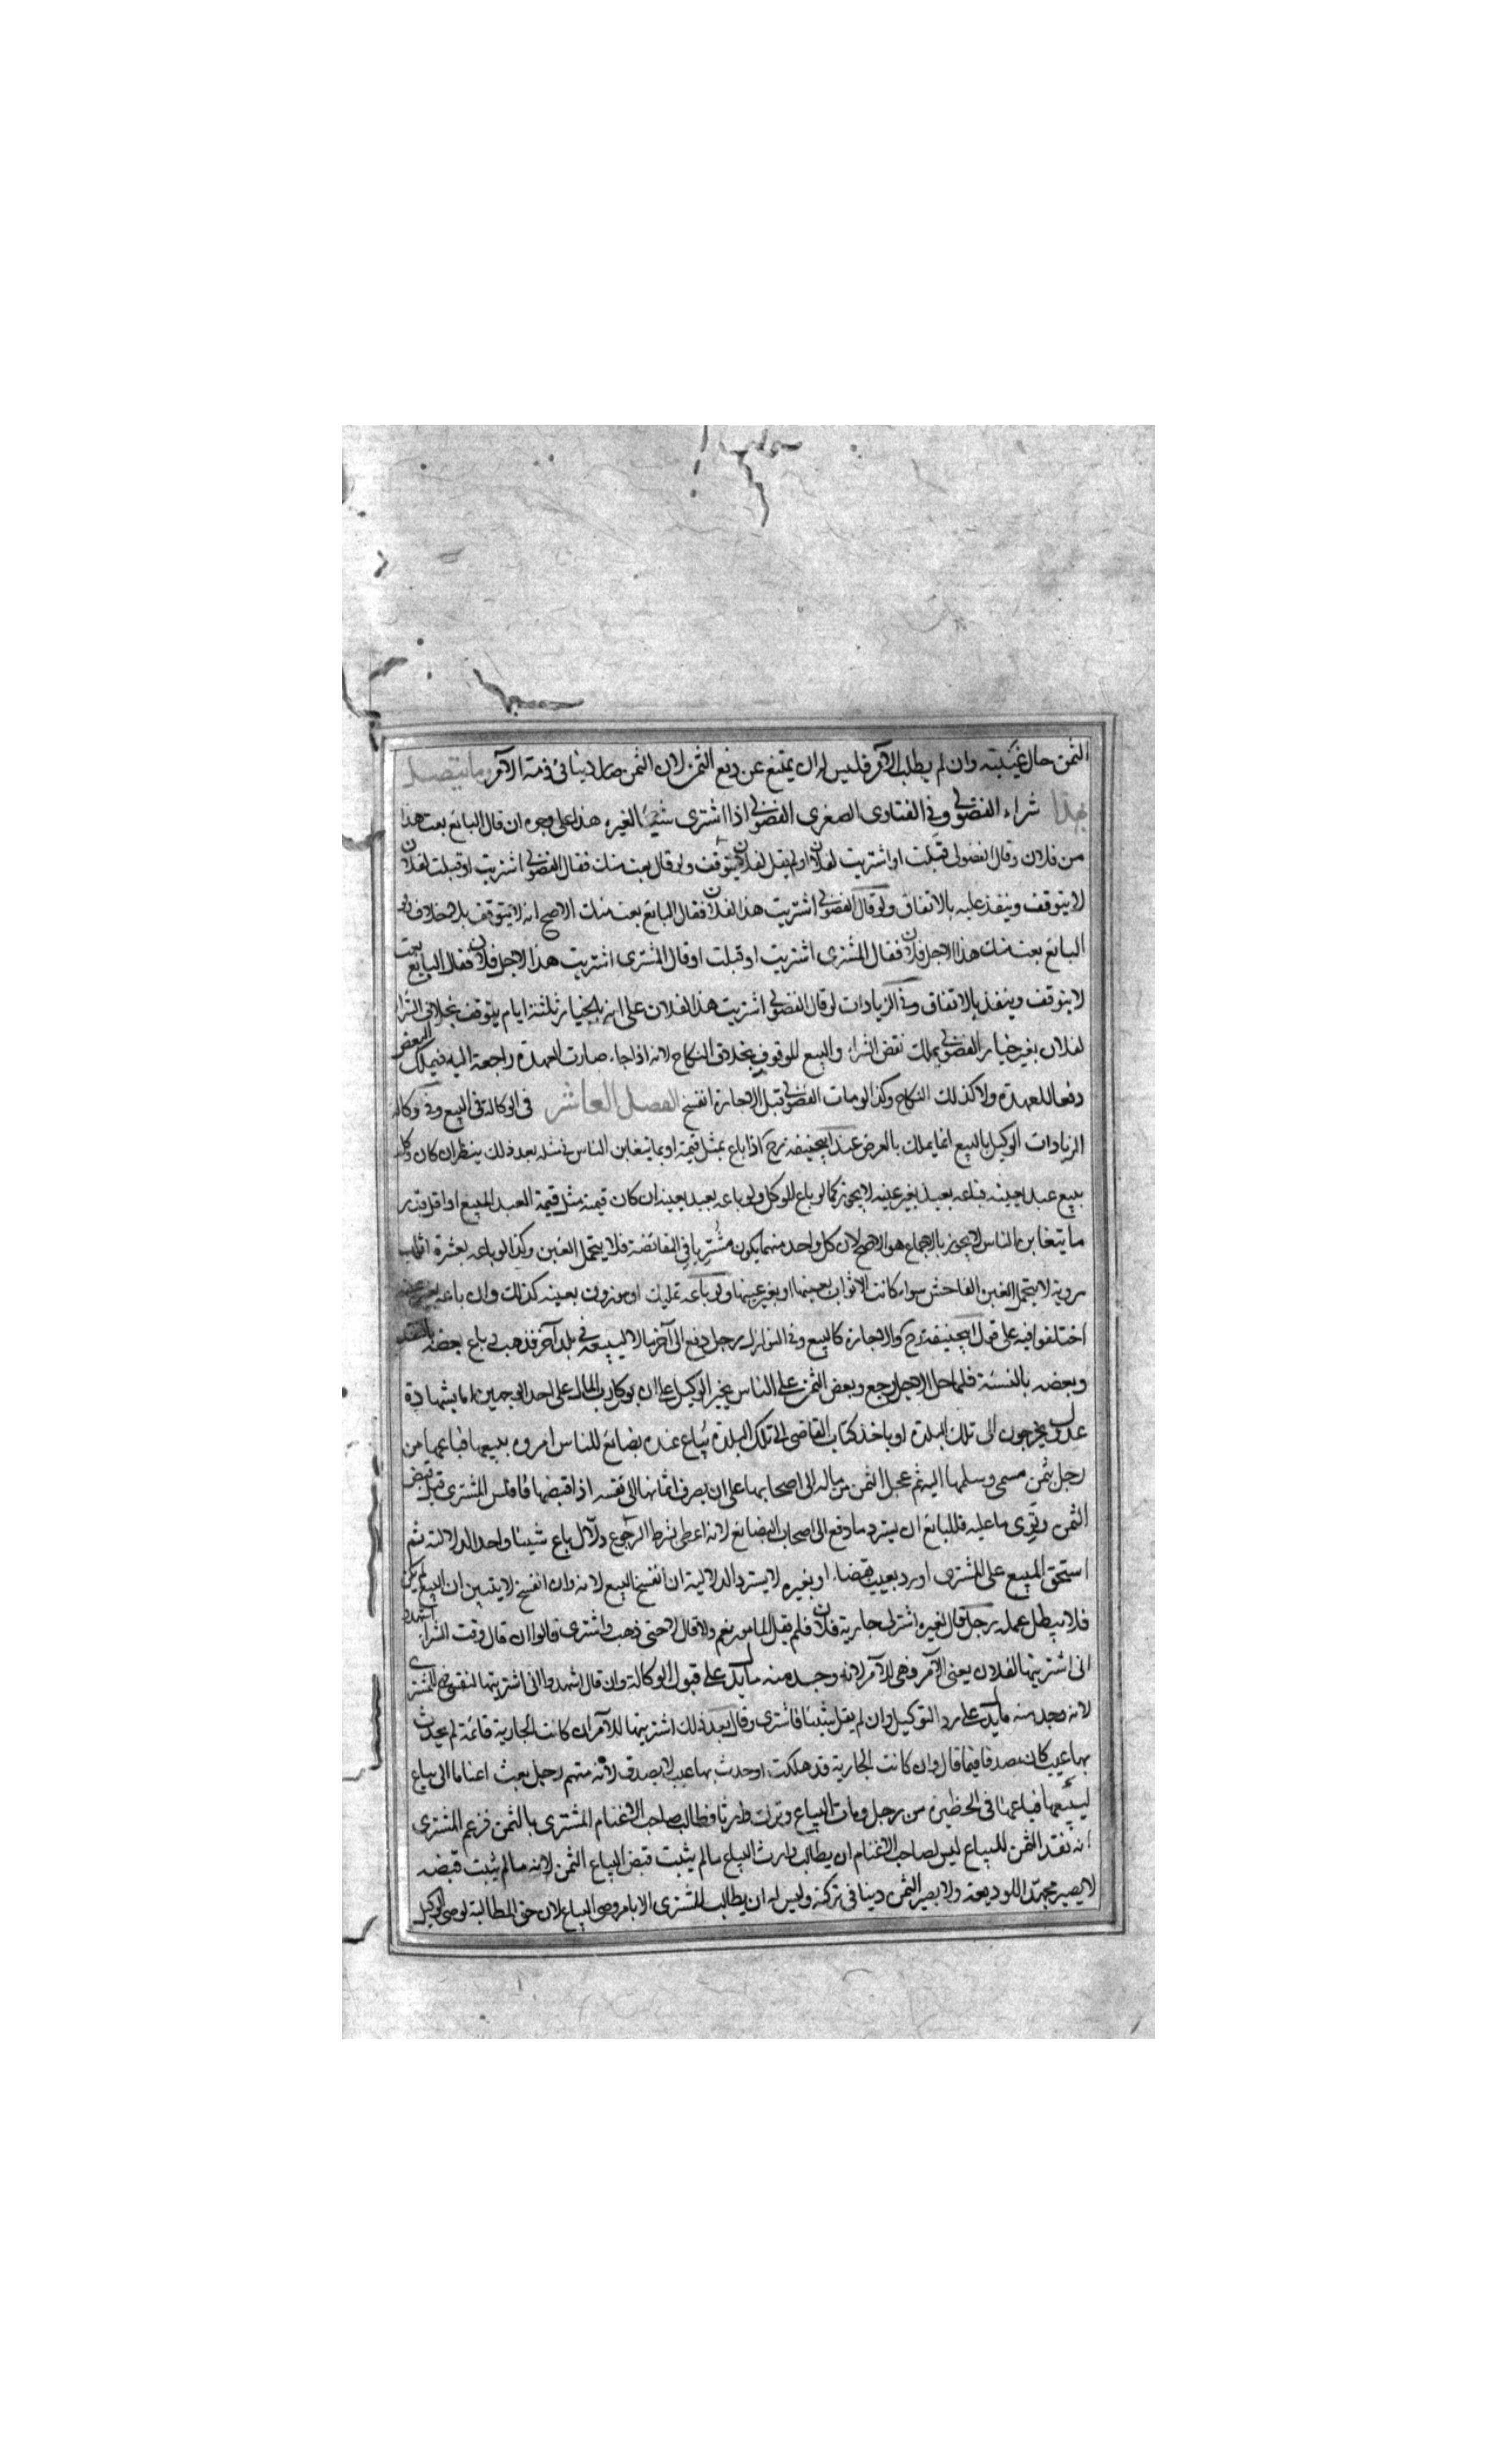 الثمن حال غيبته وان لم يطلب الآمر فليس له ان يمتنع عن دفع الثمن لان الثمن صار دينا في ذمة الآمر وما يتصل
بهذا شراء الفضولي وفي الفتاوى الصغرى الفضولي اذا اشترى شيئا لغيره هذا على وجوه ان قال البائع بعت هذا
من فلان وقال الفضولي قبلت او اشتريت لفلان او لم يقل لفلان يتوقف ولو قال بعت منك فقال الفضولي اشتريت او قبلت لفلان
لا يتوقف وينفذ عليه بالاتفاق ولو قال الفضولي اشتريت هذا لفلان فقال البائع بعت منك الاصح انه لا يتوقف بلا خلاف ولو
البائع بعت منك هذا لاجل فلان فقال المشترى اشتريت او قبلت او قال المشترى اشتريت هذا لاجل فلان فقال البائع بعت
لا يتوقف وينفذ بالاتفاق وفي الزيادات لو قال الفضولي اشتريت هذا لفلان على انه بالخيار ثلثة ايام يتوقف بخلاف الشرا
لفلان بغير خيار الفضولي يملك نقض الشراء والبيع الموقوف بخلاف النكاح لانه اذا جاء صارت العهدة راجعة اليه فيملك النقض
دفعا للعهدة ولا كذلك النكاح وكذا لو مات الفضولي قبل الاجازة انفسخ الفصل العاشر في الوكالة في البيع وفي وكالة
الزيادات الوكيل بالبيع انما يملك بالعرض عند ابيحنيفه رح اذا باع بمثل قيمته او بما يتغابن الناس في مثله بعد ذلك ينظر ان كان وكله
ببيع عبد بعينه فباعه بعبد بغير عينه لا يجوز كما لو باع الموكل ولو باعه بعبد بعينه ان كان قيمته مثل قيمة العبد المبيع او اقل قدر
ما يتغابن الناس لا يجوز بالاجماع هو الاصح لان كل واحد منهما يكون مشتريا في المقائضة فلا يتحمل الغبن وكذا لو باعه بعشرة اثواب
هروية لا يتحمل الغبن الفاحش سواء كانت الاثواب بعينها او بغير عينها ولو باعه بمكيل او موزون بعينه كذلك وان باعه بغير عينه
اختلفوا فيه على قول ابيحنيفه رح والاجازة كالبيع وفي النوازل رجل دفع الى آخر مالا ليبيعه في بلد آخر فذهب باع بعضه بالنقد
وبعضه بالنسئة فلما حل الاجل رجع وبعض الثمن على الناس يجبر الوكيل على ان يوكل رب المال على احد الوجهين اما بشهادة
عدول يخرجون الى تلك البلدة او ياخذ كتاب القاضي الى تلك البلدة بياع عنده بضائع للناس امروه ببيعها فباعها من
رجل بثمن مسمى وسلمها اليه ثم عجل الثمن من ماله الى اصحابها على ان يصرف اثمانها الى نفسه اذا قبضها فافلس المشترى قبل قبض
الثمن وتوى ما عليه فللبائع ان يسترد ما دفع الى اصحاب البضائع لانه اعطى بشرط الرجوع دلال باع شيئا واخذ الدلالة ثم
استحق المبيع على المشترى او رد بعيب بقضاء او بغيره لا يسترد الدلالية ان انفسخ البيع لانه وان انفسخ لا يتبين ان البيع لم يكن
فلا يبطل عمله رجل قال لغيره اشتر لي جارية فلان فلم يقل المامور نعم ولا قال لا حتى ذهب واشترى قالوا ان قال وقت الشراء اشهدوا
انى اشتريتها لفلان يعنى الآمر فهي للآمر لانه وجد منه ما يدل على قبول الوكالة وان قال اشهدوا انى اشتريتها لنفسي فهي للمشترى
لانه وجد منه ما يدل على رد التوكيل وان لم يقل شيئا فاشترى وقال بعد ذلك اشتريتها للآمر ان كانت الجارية قائمة لم يحدث
بها عيب كان مصدقا فيما قال وان كانت الجارية قد هلكت او حدث بها عيب لا يصدق لانه متهم رجل بعث اغناما الى بياع
ليبيعها فباعها في الحظيرة من رجل ومات البياع وترك وارثا فطالب صاحب الاغنام المشترى بالثمن فزعم المشترى
انه نقد الثمن للبياع ليس لصاحب الاغنام ان يطالب وارث البياع ما لم يثبت قبض البياع الثمن لانه ما لم يثبت قبضه
لا يصير مجهلا للوديعة ولا يصير الثمن دينا في تركته وليس له ان يطالب المشترى الا بامر وصى البياع لان حق المطالبة لوصي الوكيل